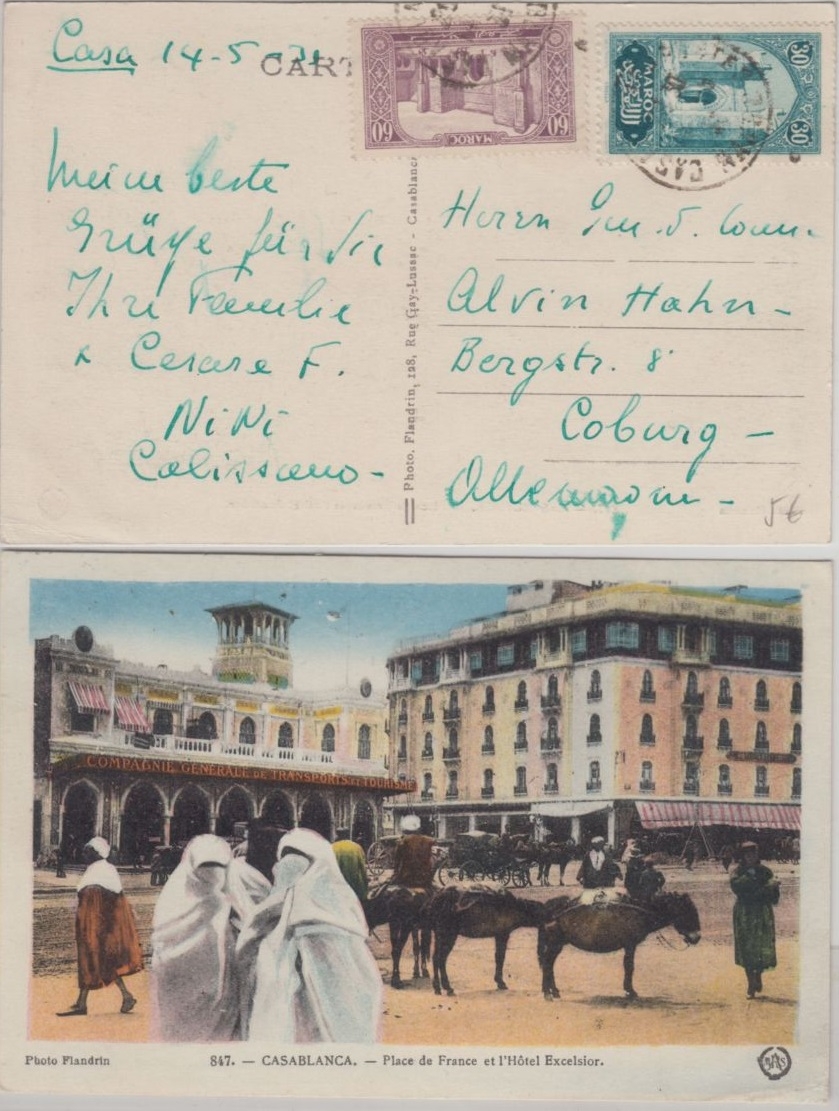 Casa 14-5-31
CART
60 MAROC 60
30 MAROC 30
Meine beste
Grüße für Sie
Ihre Familie
Cesare F.
NiNi
Calissano-
Photo. Flandrin, 128, Rue Gay-Lussac - Casablanca
Herrn
Alvin Hahn-
Bergstr. 8
Coburg-
Allemagne-
5€
COMPAGNIE GENERALE DE TRANSPORTS ET TOURISME
Photo Flandrin
847. — CASABLANCA. — Place de France et l'Hôtel Excelsior.